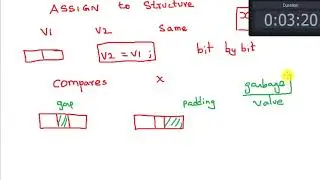 ASSIGN to Structure
Duration
0:03:20
V1 V2 Same
V2 = V1 ; bit by bit
Compares X
garbage
gap padding value